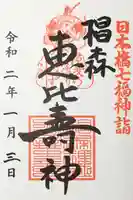 日本橋七福神詣
椙森
恵比寿神
令和二年一月三日